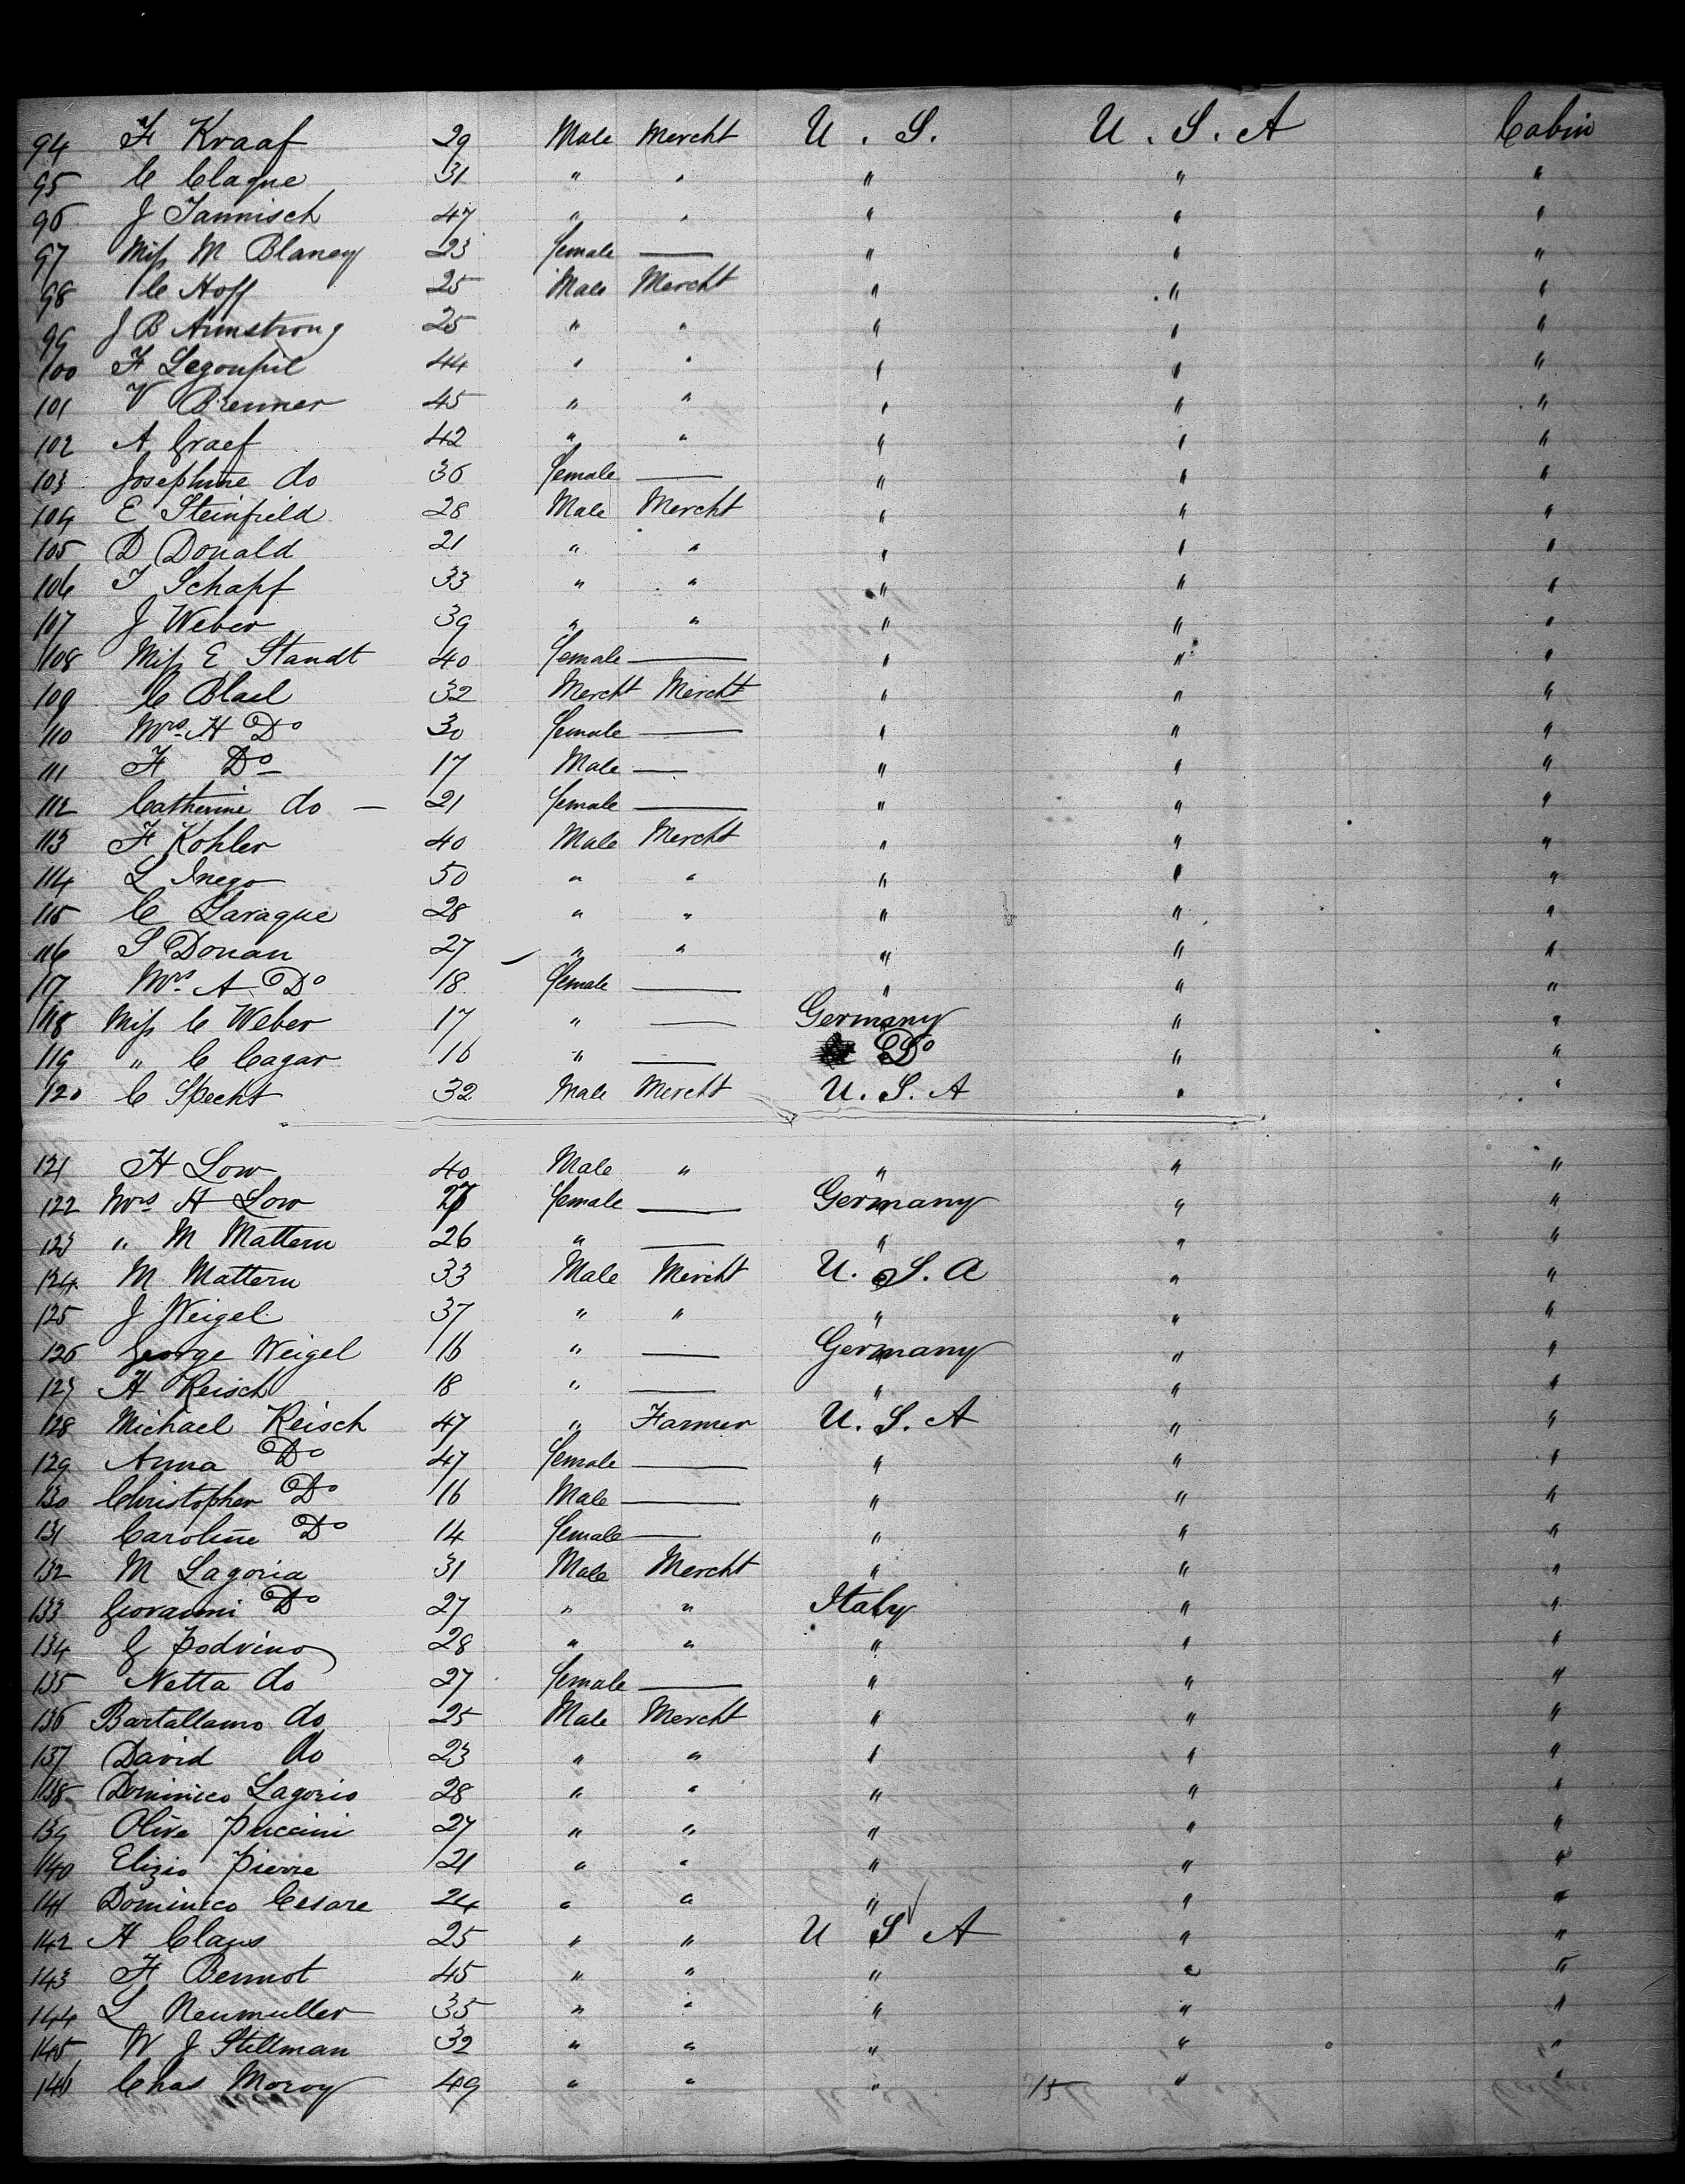 94 H Kraaf 29 Male Mercht U. S. U. S. A Cabin
95 C Clague 31 " " " " "
96 J Jannisch 47 " " " " "
97 Miss M Blaney 23 female — " " "
98 C Hoff 25 Male Mercht " " "
99 J B Armstrong 25 " " " " "
100 H Legoupil 44 " " " " "
101 V Brenner 45 " " " " "
102 A Graef 42 " " " " "
103 Josephine do 36 female — " " "
104 E Steinfield 28 Male Mercht " " "
105 D Donald 21 " " " " "
106 J Schapf 33 " " " " "
107 J Weber 39 " " " " "
108 Miss E Standt 40 female — " " "
109 C Blael 32 Mercht Mercht " " "
110 Mrs H Do 30 female — " " "
111 H Do 17 Male — " " "
112 Catherine do — 21 female — " " "
113 H Kohler 40 Male Mercht " " "
114 L Inego 50 " " " " "
115 C Laraque 28 " " " " "
116 S Donan 27 " " " " "
117 Mrs A Do 18 female — " " "
118 Miss C Weber 17 " — Germany " "
119 " C Cagar 16 " — Do " "
120 C Specht 32 Male Mercht U. S. A " "
121 H Low 40 Male " " " "
122 Mrs H Low female — Germany " "
123 " M Mattern 26 " — " " "
124 M Mattern 33 Male Mercht U. S. A " "
125 J Weigel 37 " " " " "
126 George Weigel 16 " — Germany " "
127 H Reisch 18 " — " " "
128 Michael Reisch 47 " Farmer U. S. A " "
129 Anna Do 47 female — " " "
130 Christopher Do 16 Male — " " "
131 Caroline Do 14 female — " " "
132 M Lagoria 31 Male Mercht " " "
133 Giovanni Do 27 " " Italy " "
134 G Podvino 28 " " " " "
135 Netta do 27 female — " " "
136 Bartallamo do 25 Male Mercht " " "
137 David do 23 " " " " "
138 Dominico Lagorio 28 " " " " "
139 Olive Puccini 27 " " " " "
140 Elizio Pierre 21 " " " " "
141 Dominico Cesare 24 " " " " "
142 H Claus 25 " " U S A " "
143 H Bennot 45 " " " " "
144 L Neumuller 35 " " " " "
145 W J Stillman 32 " " " " "
146 Chas Moroy 49 " " " 15 " "